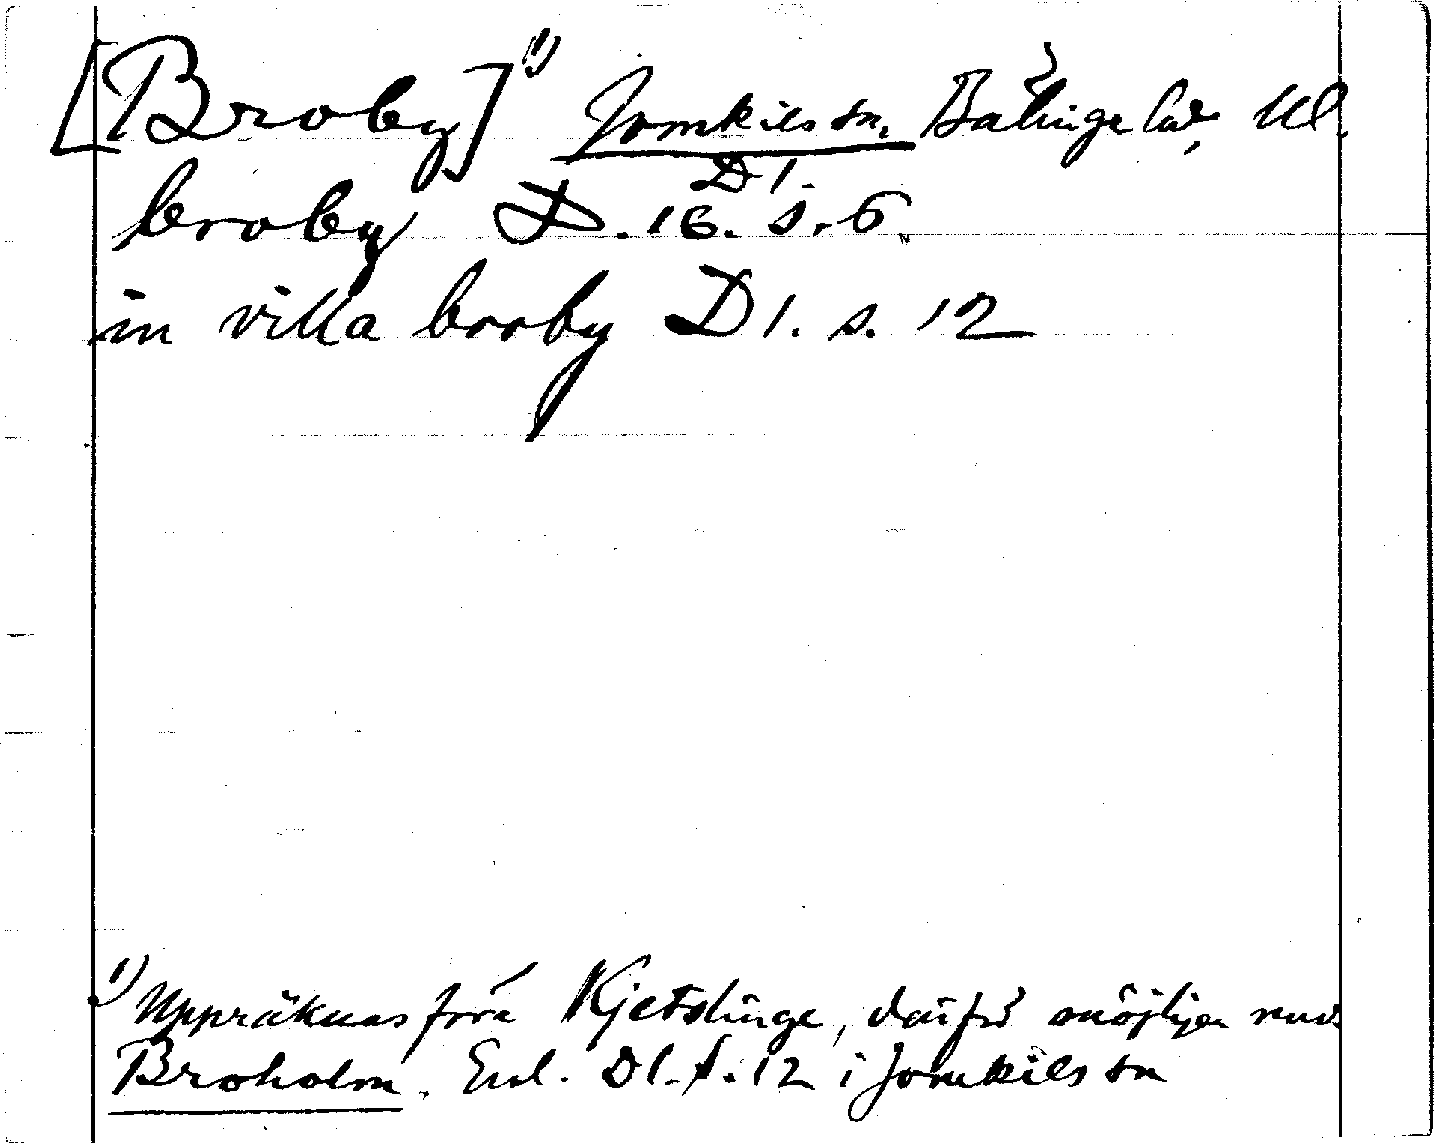 [Broby] 1) Jomkils sn, Bälinge hd, Ul.
D1.
broby D. 16. s. 6.
in villa broby D1. s. 12
1) Uppräknas före Kjetslinge, därför möjligen nuv.
Broholm. Enl. D1. s. 12 i Jomkils sn